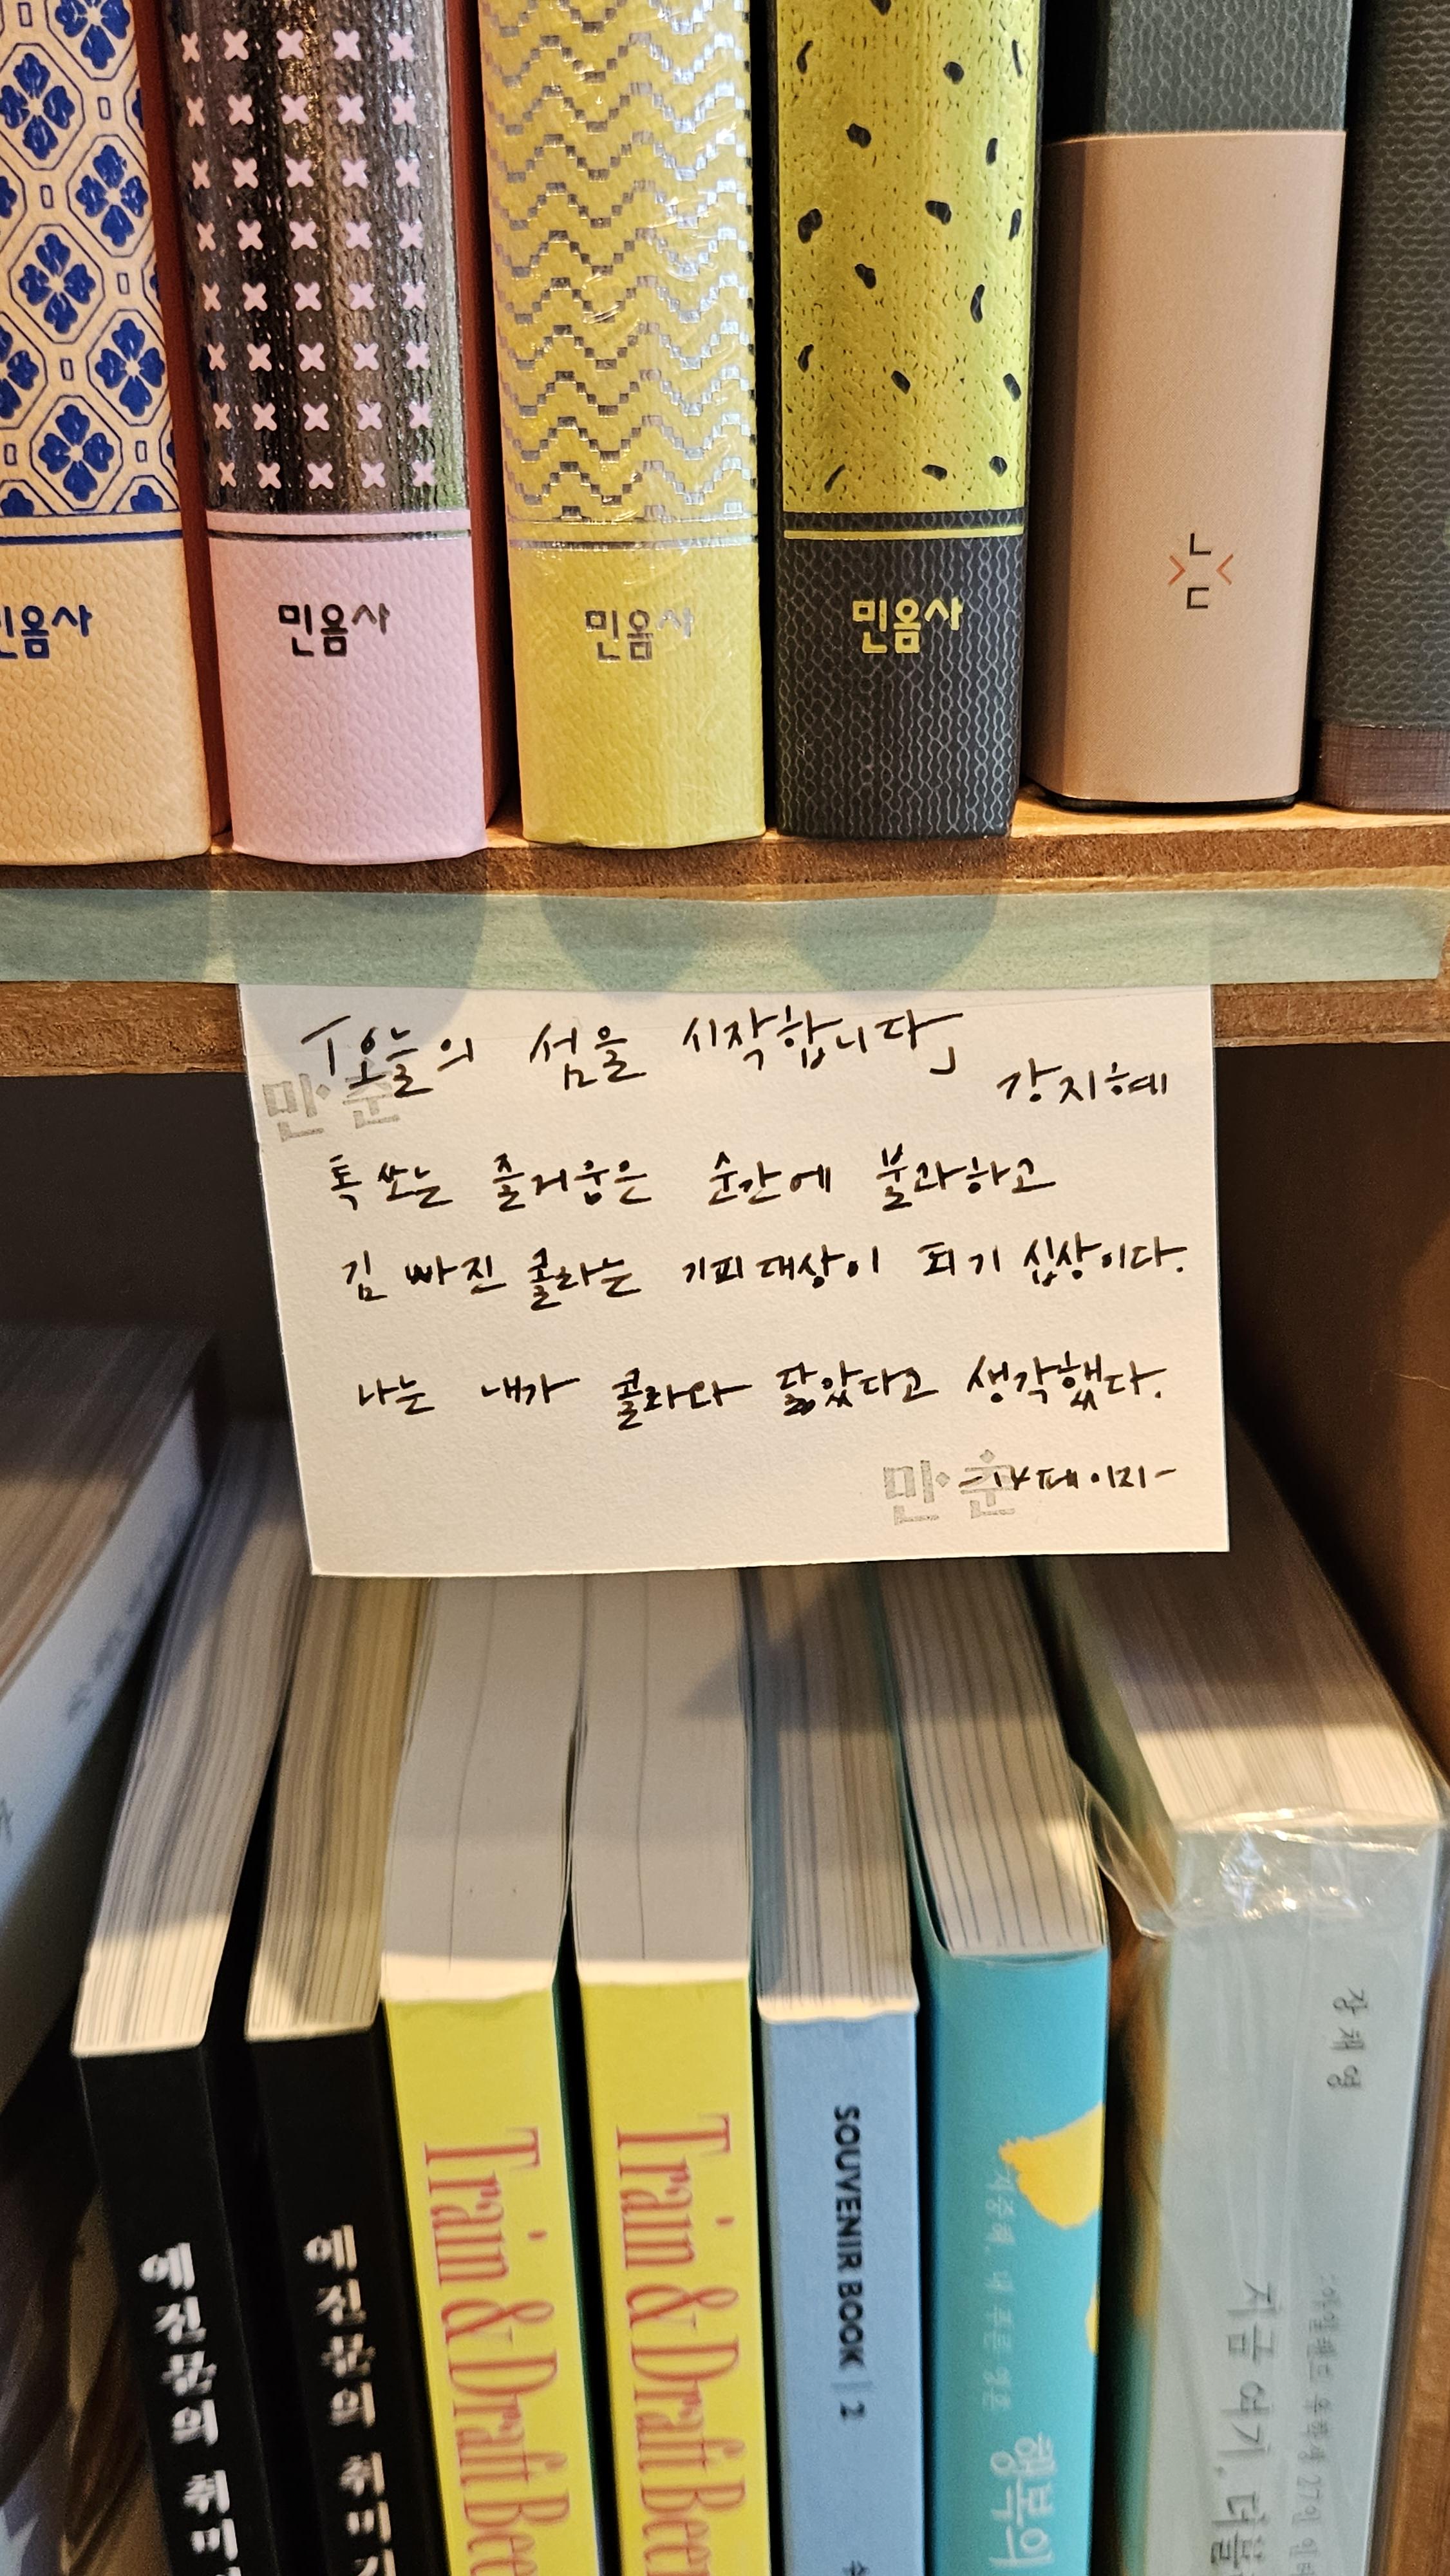 민음사
민음사
민음사
민음사
ㄴ
ㄷ
「오늘의 섬을 시작합니다」
강지혜
민·춘
톡 쏘는 즐거움은 순간에 불과하고
김 빠진 콜라는 기피대상이 되기 십상이다.
나는 내가 콜라와 닮았다고 생각했다.
민·춘
페이지-
예진문의 취미
예진문의 취미
Train & Draft Beer
Train & Draft Beer
SOUVENIR BOOK | 2
행복의
장채영
지금 여기,